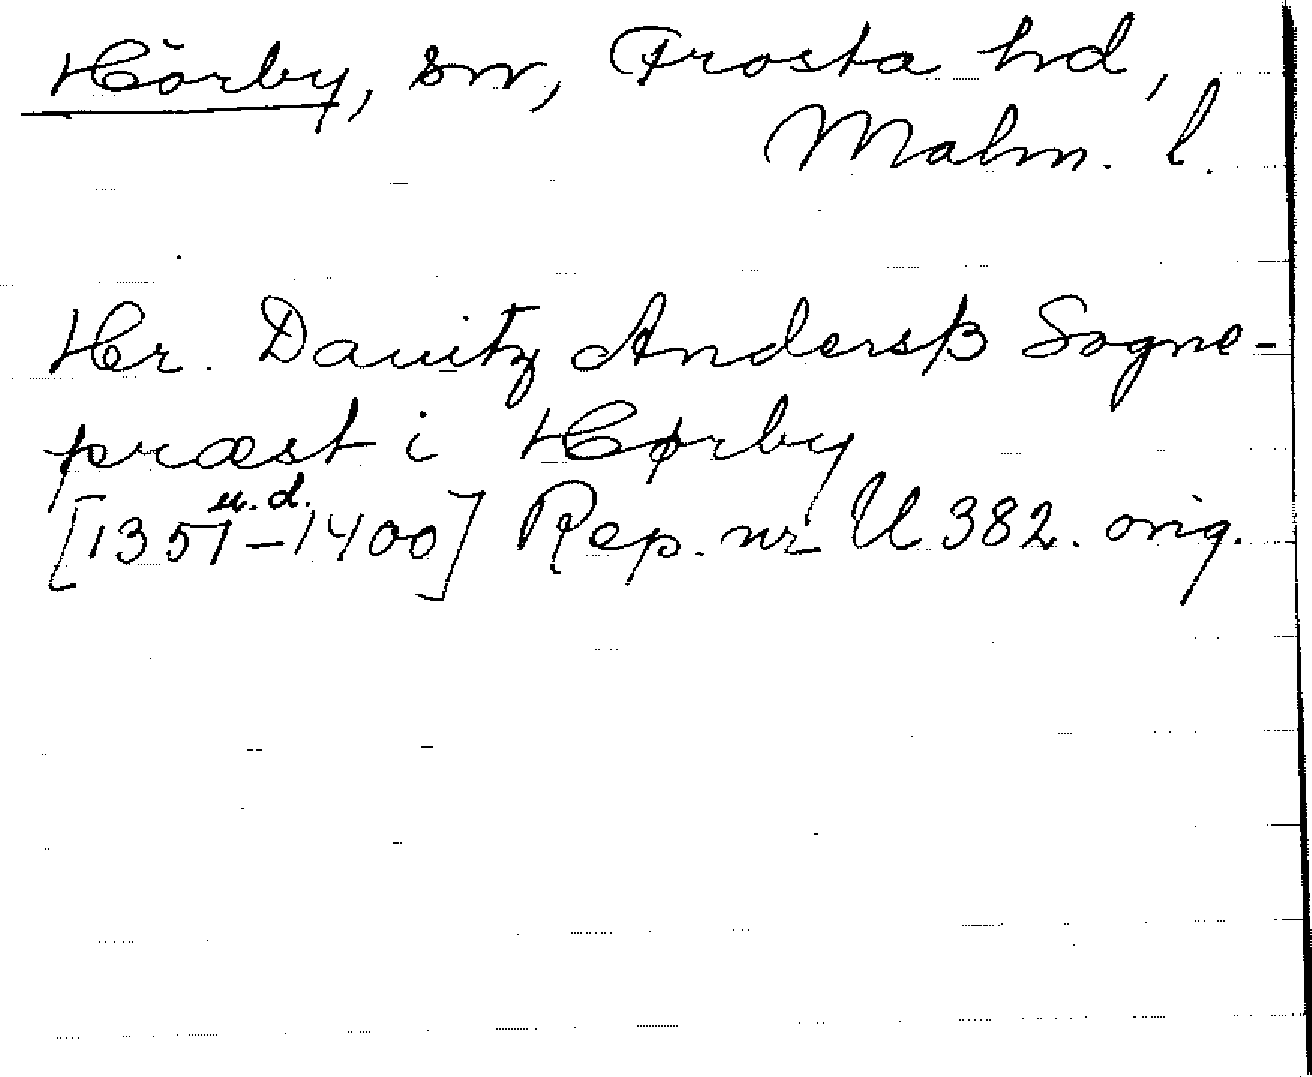 Hörby, sn, Frosta hd,
Malm. l.
Hr. Dauitz Andersβ Sogne-
præst i Hørby
u. d.
[1351-1400] Rep. nr U 382. orig.